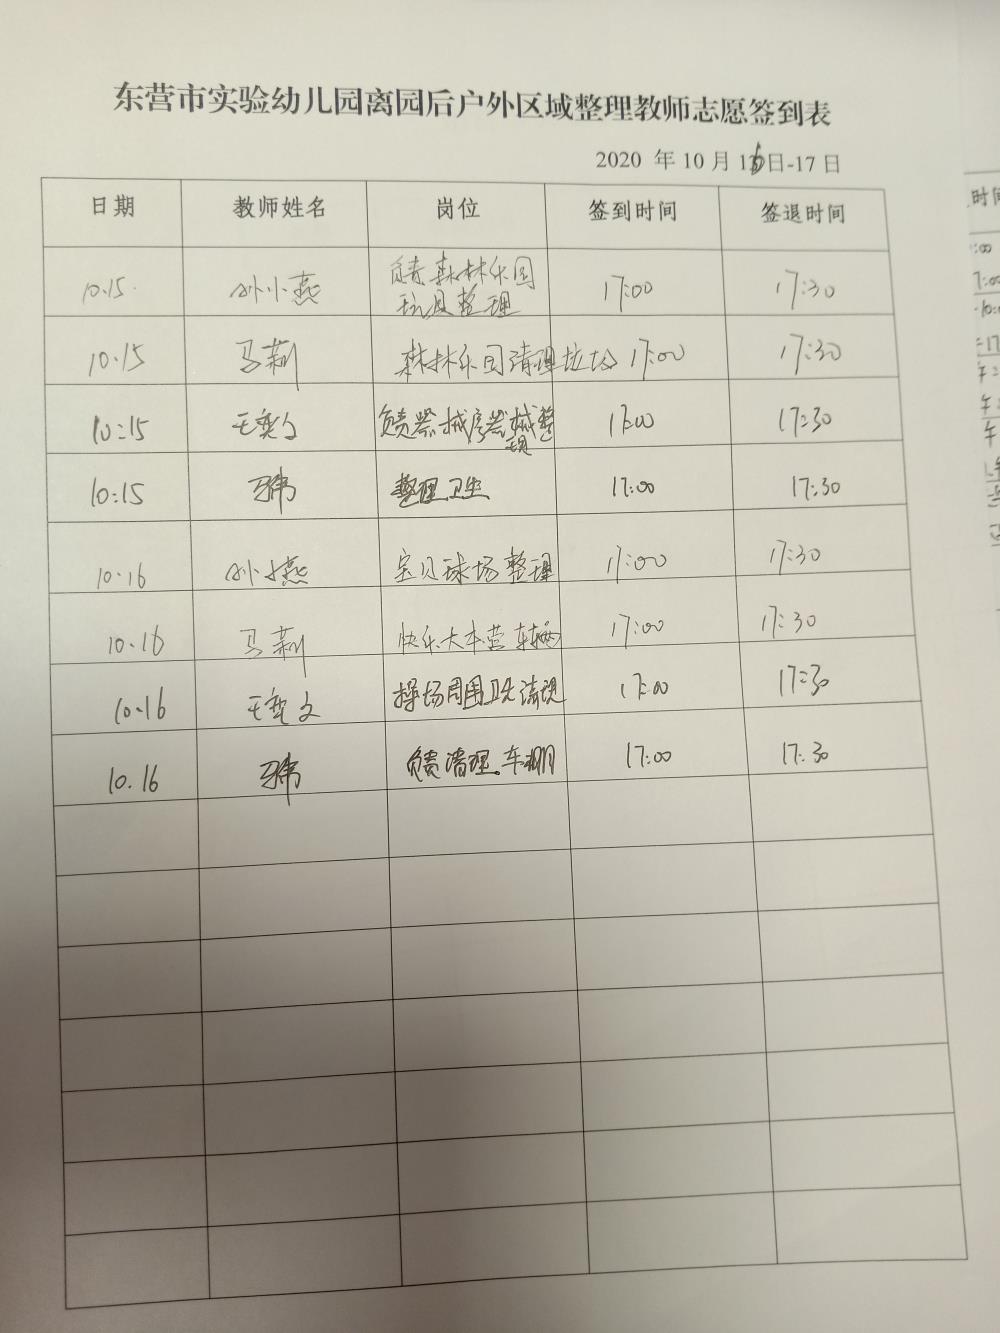 东营市实验幼儿园离园后户外区域整理教师志愿签到表
2020 年 10 月 15日-17 日
日期 教师姓名 岗位 签到时间 签退时间
10.15 孙小燕 负责森林乐园 17:00 17:30
玩具整理
10.15 马莉 森林乐园清理垃圾 17:00 17:30
10:15 王奕文 负责器械房器械整 17:00 17:30
理
10:15 整理卫生 17:00 17:30
10.16 孙小燕 宝贝球场整理 17:00 17:30
10.16 马莉 快乐大本营车辆 17:00 17:30
10.16 王奕文 操场周围卫生清理 17:00 17:30
10.16 负责清理车棚 17:00 17:30